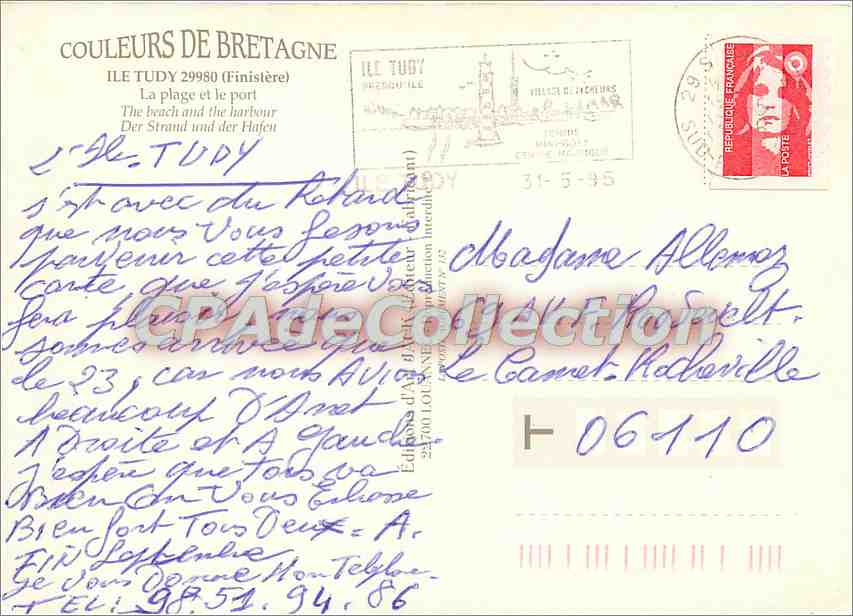 COULEURS DE BRETAGNE
ILE TUDY 29980 (Finistère)
La plage et le port
The beach and the harbour
Der Strand und der Hafen
ILE TUDY
PRESQU'ILE
VILLAGE DE PECHEURS
TENNIS
ILE TUDY 31-5-95
29 SUD
REPUBLIQUE FRANÇAISE
LA POSTE
TUDY
s'est avec du Retard
que nous vous fesons
parvenir cette petite
carte que j'espère vous
fera plaisir, nous
sommes arrivée que
le 23, car nous AVION
beaucoup D'Aret
A Droite et A gauche
j'espère que tous va
Bien On Vous Enbrasse
Bien fort Tous Deux = A.
FIN Septembre
Je vous Donne Mon Telepho-
TEL: 98.51.94.86
Éditions d'Art JACK (Éditeur Fabricant)
22700 LOUANNEC Reproduction Interdite
Madame Allemoz
69 AV. F. Roosevelt.
Le Cannet-Rocheville
06110
CPAdeCollection